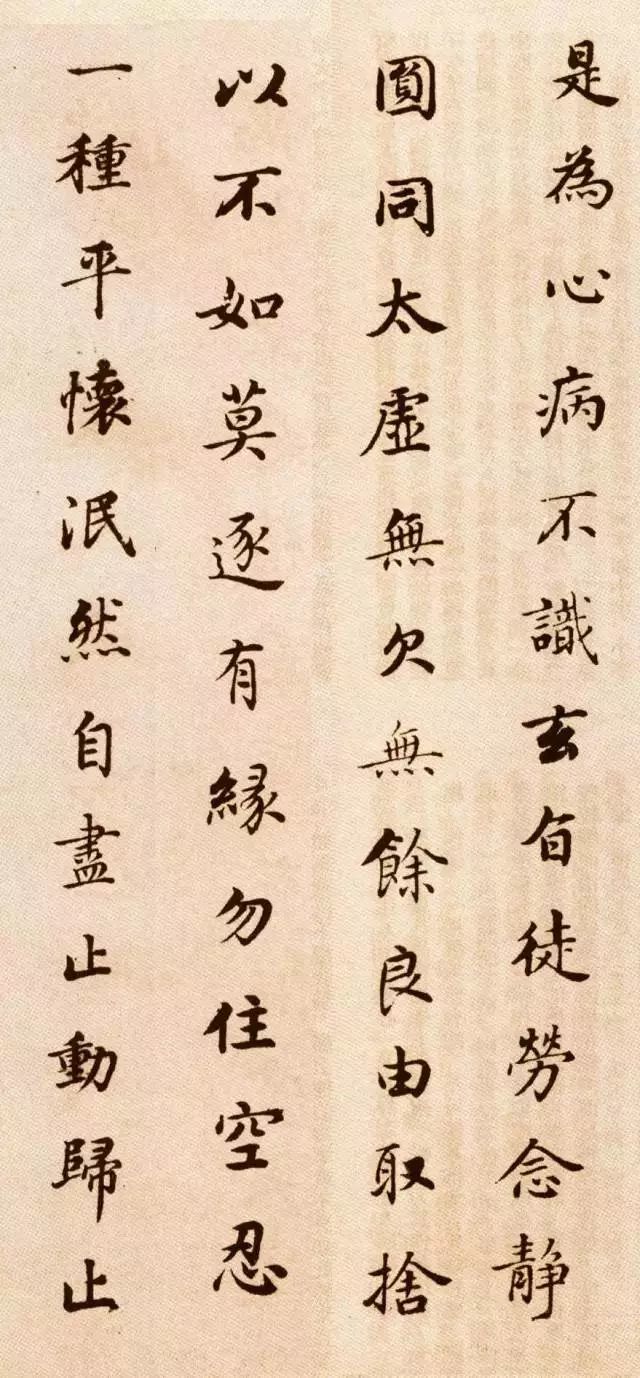 是為心病不識玄旨徒勞念静
圓同太虛無欠無餘良由取捨
以不如莫逐有緣勿住空忍
一種平懷泯然自盡止動歸止